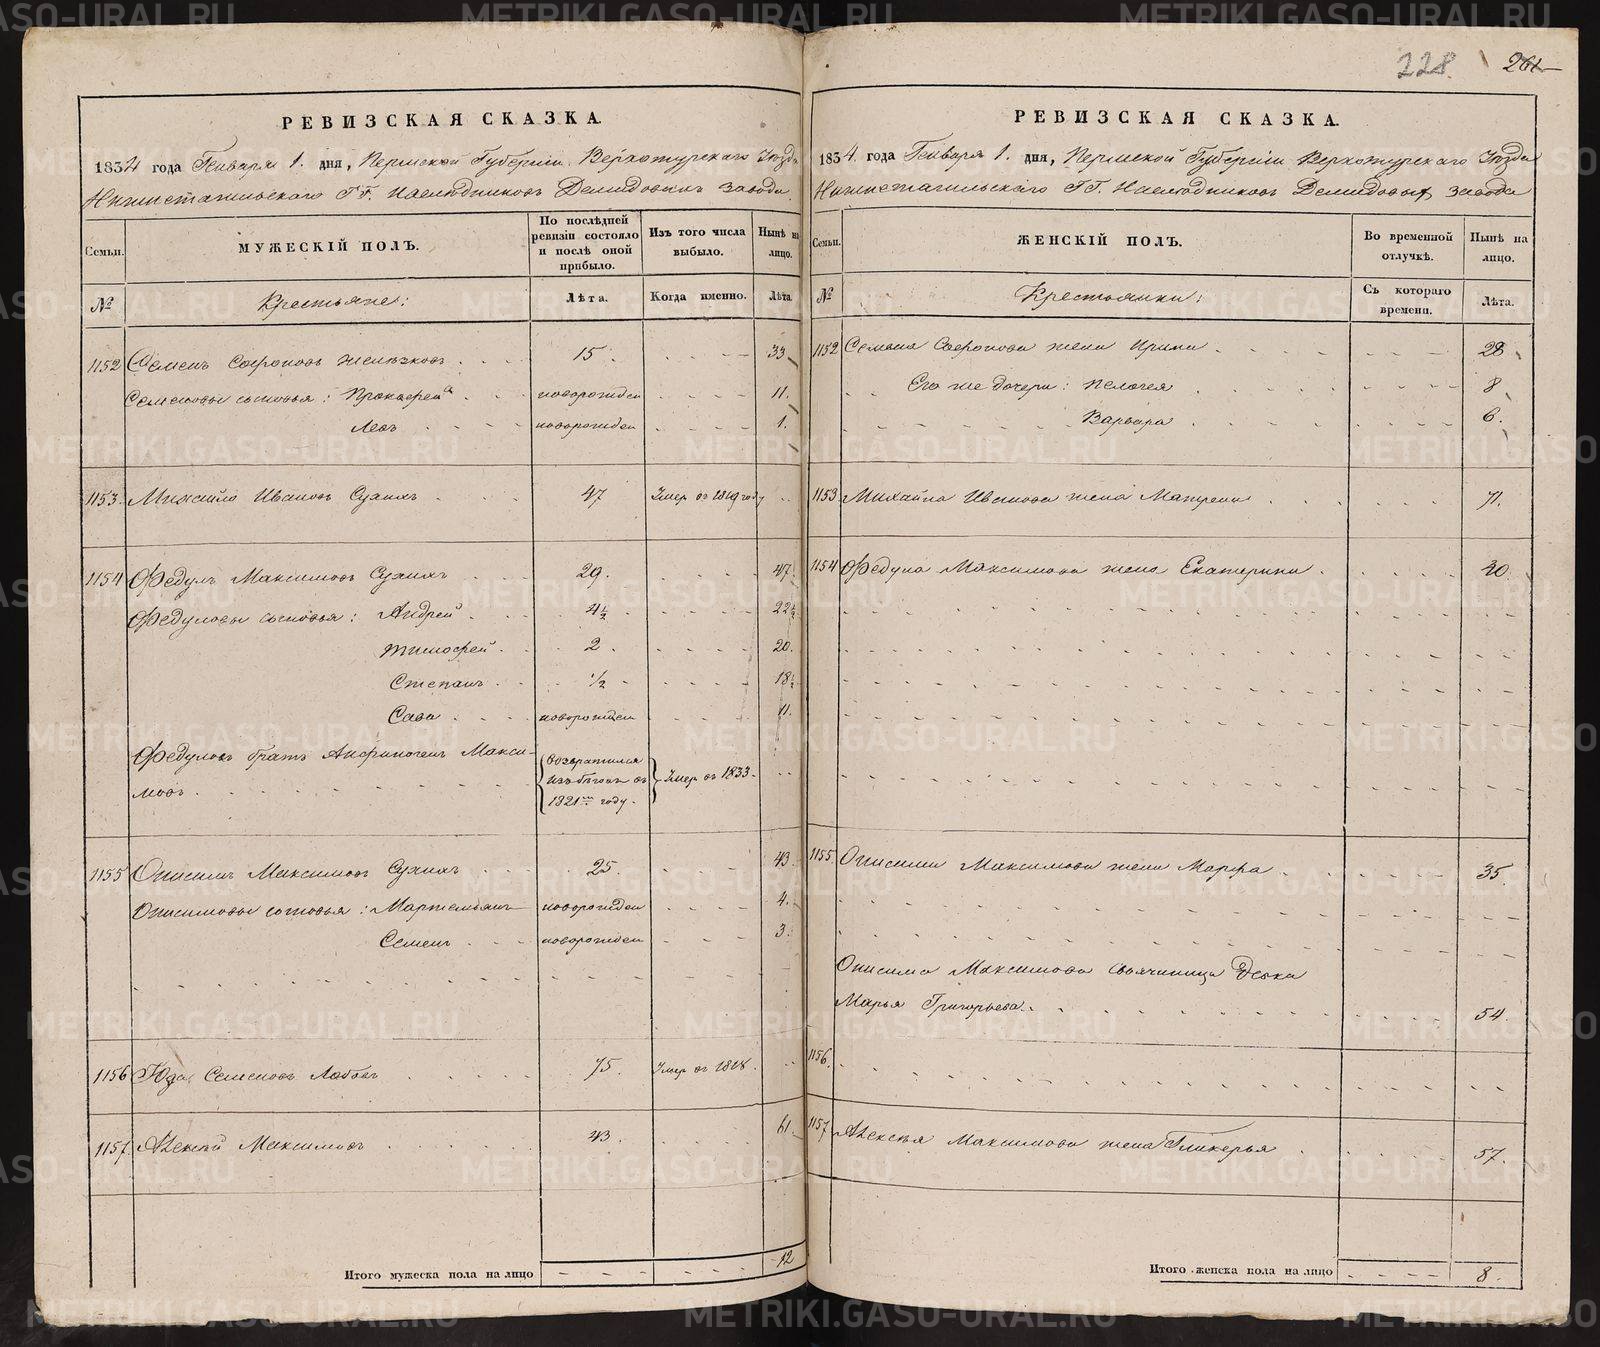 228. 261
РЕВИЗСКАЯ СКАЗКА.
1834 года Генваря 1. дня, Пермской Губерніи Верхотурскаго Уѣзда
Нижнетагильскаго ГГ. Наслѣдниковъ Демидовыхъ завода
Семьи. МУЖЕСКІЙ ПОЛЪ. По послѣдней ревизіи состояло и послѣ оной прибыло. Изъ того числа выбыло. Нынѣ на лицо.
№ Крестьяне: Лѣта. Когда именно. Лѣта.
1152 Семенъ Софроновъ 15. 33
Семеновы сыновья: Прокофей новорожден 11.
Левъ новорожден 1.
1153. Михайло Ивановъ Сухихъ 47 Умер въ 1819 году
1154 Федулъ Максимовъ Сухихъ 29. 47.
Федуловы сыновья: Андрей 4½ 22½
Тимофей 2. 20.
Степанъ ½ 18½
Сава новорожден 11.
Федуловъ братъ Анфиногенъ Макси-
мовъ возвратился изъ бѣговъ въ 1821м году. Умер въ 1833.
1155 Онисимъ Максимовъ Сухихъ 25. 43
Онисимовы сыновья: Мартемьянъ новорожден 4.
Семенъ новорожден 3.
1156 Семеновъ 75. Умер въ 1818.
1157 Алексѣй Максимовъ 43. 61.
Итого мужеска пола на лицо 12
РЕВИЗСКАЯ СКАЗКА.
1834. года Генваря 1. дня, Пермской Губерніи Верхотурскаго Уѣзда
Нижнетагильскаго ГГ. Наслѣдниковъ Демидовыхъ завода
Семьи. ЖЕНСКІЙ ПОЛЪ. Во временной отлучкѣ. Нынѣ на лицо.
№ Крестьянки: Съ котораго времени. Лѣта.
1152 Семена Софронова жена Ирина 28
Его же дочери: Пелагея 8
Варвара 6.
1153 Михайла Иванова жена Матрена 71.
1154 Федула Максимова жена Екатерина
1155 Онисима Максимова жена Марфа 35.
Онисима Максимова свояченица Девка
Марья Григорьева. 54.
1156.
1157 Алексѣя Максимова жена Гликерья 57.
Итого женска пола на лицо 8.
METRIKI.GASO-URAL.RU